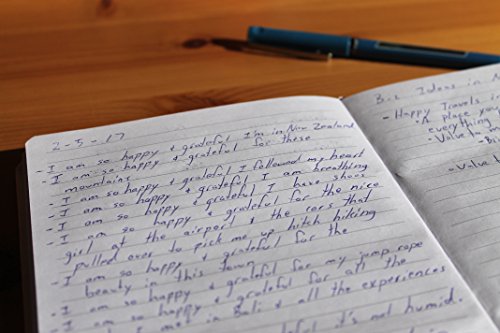 2-5-17
- I am so happy & grateful I'm in New Zealand
- I am so happy & grateful for these
mountains
- I am so happy & grateful I followed my heart
- I am so happy & grateful I am breathing
- I am so happy & grateful I have shoes
- I am so happy & grateful for the nice
girl at the airport & the cars that
pulled over to pick me up hitch hiking
- I am so happy & grateful for the
beauty in this town
- I am so happy & grateful for my jump rope
- I am so happy & grateful for all the
I met in Bali & all the experiences
it's not humid.
B-2 Ideas in
- Happy Travels
- A place you
everything
- Value to
- Value